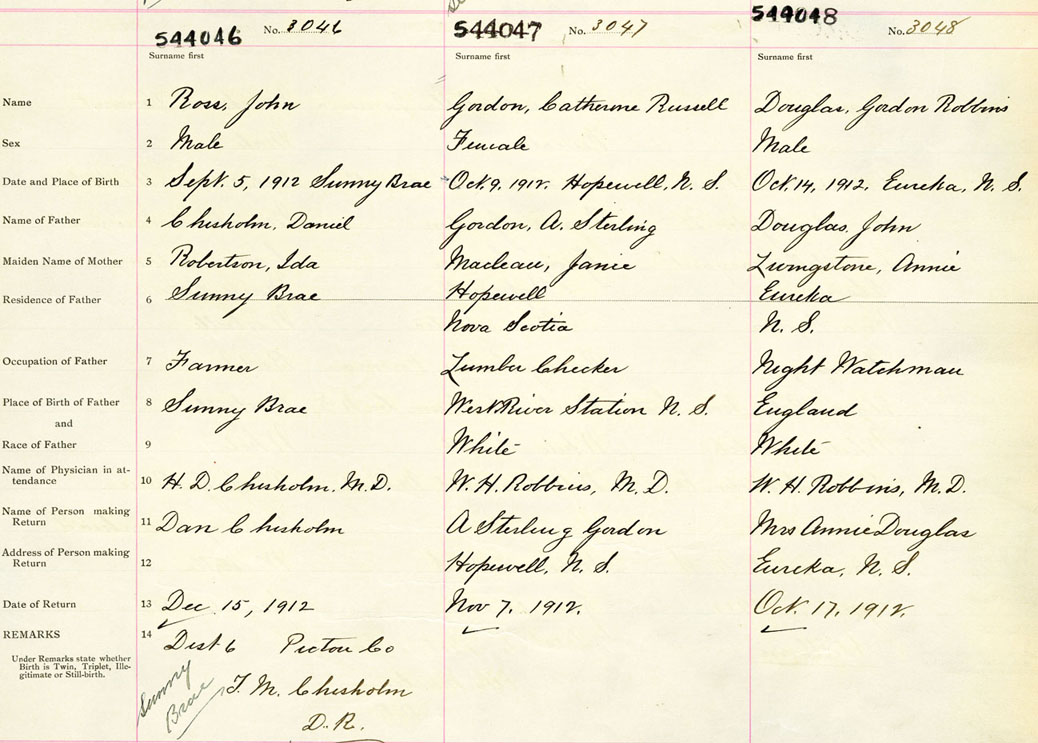 544046 No. 3046 544047 No. 3047 544048 No. 3048
Surname first Surname first Surname first
Name 1 Ross, John Gordon, Catherine Russell Douglas, Gordon Robbins
Sex 2 Male Female Male
Date and Place of Birth 3 Sept. 5, 1912 Sunny Brae Oct. 9. 1912. Hopewell, N. S. Oct. 14, 1912, Eureka, N. S.
Name of Father 4 Chisholm, Daniel Gordon, A. Sterling Douglas, John
Maiden Name of Mother 5 Robertson, Ida Maclean, Janie Livingstone, Annie
Residence of Father 6 Sunny Brae Hopewell Eureka
Nova Scotia N. S.
Occupation of Father 7 Farmer Lumber Checker Night Watchman
Place of Birth of Father 8 Sunny Brae West River Station N. S. England
and
Race of Father 9 White White
Name of Physician in at-
tendance 10 H. D. Chisholm. M. D. W. H. Robbins, M. D. W. H. Robbins, M. D.
Name of Person making
Return 11 Dan Chisholm A Sterling Gordon Mrs Annie Douglas
Address of Person making
Return 12 Hopewell, N. S. Eureka, N. S.
Date of Return 13 Dec 15, 1912 Nov 7. 1912. Oct. 17, 1912.
REMARKS 14 Dist 6 Pictou Co
Under Remarks state whether
Birth is Twin, Triplet, Ille-
gitimate or Still-birth.
Sunny
Brae
T. M. Chisholm
D. R.